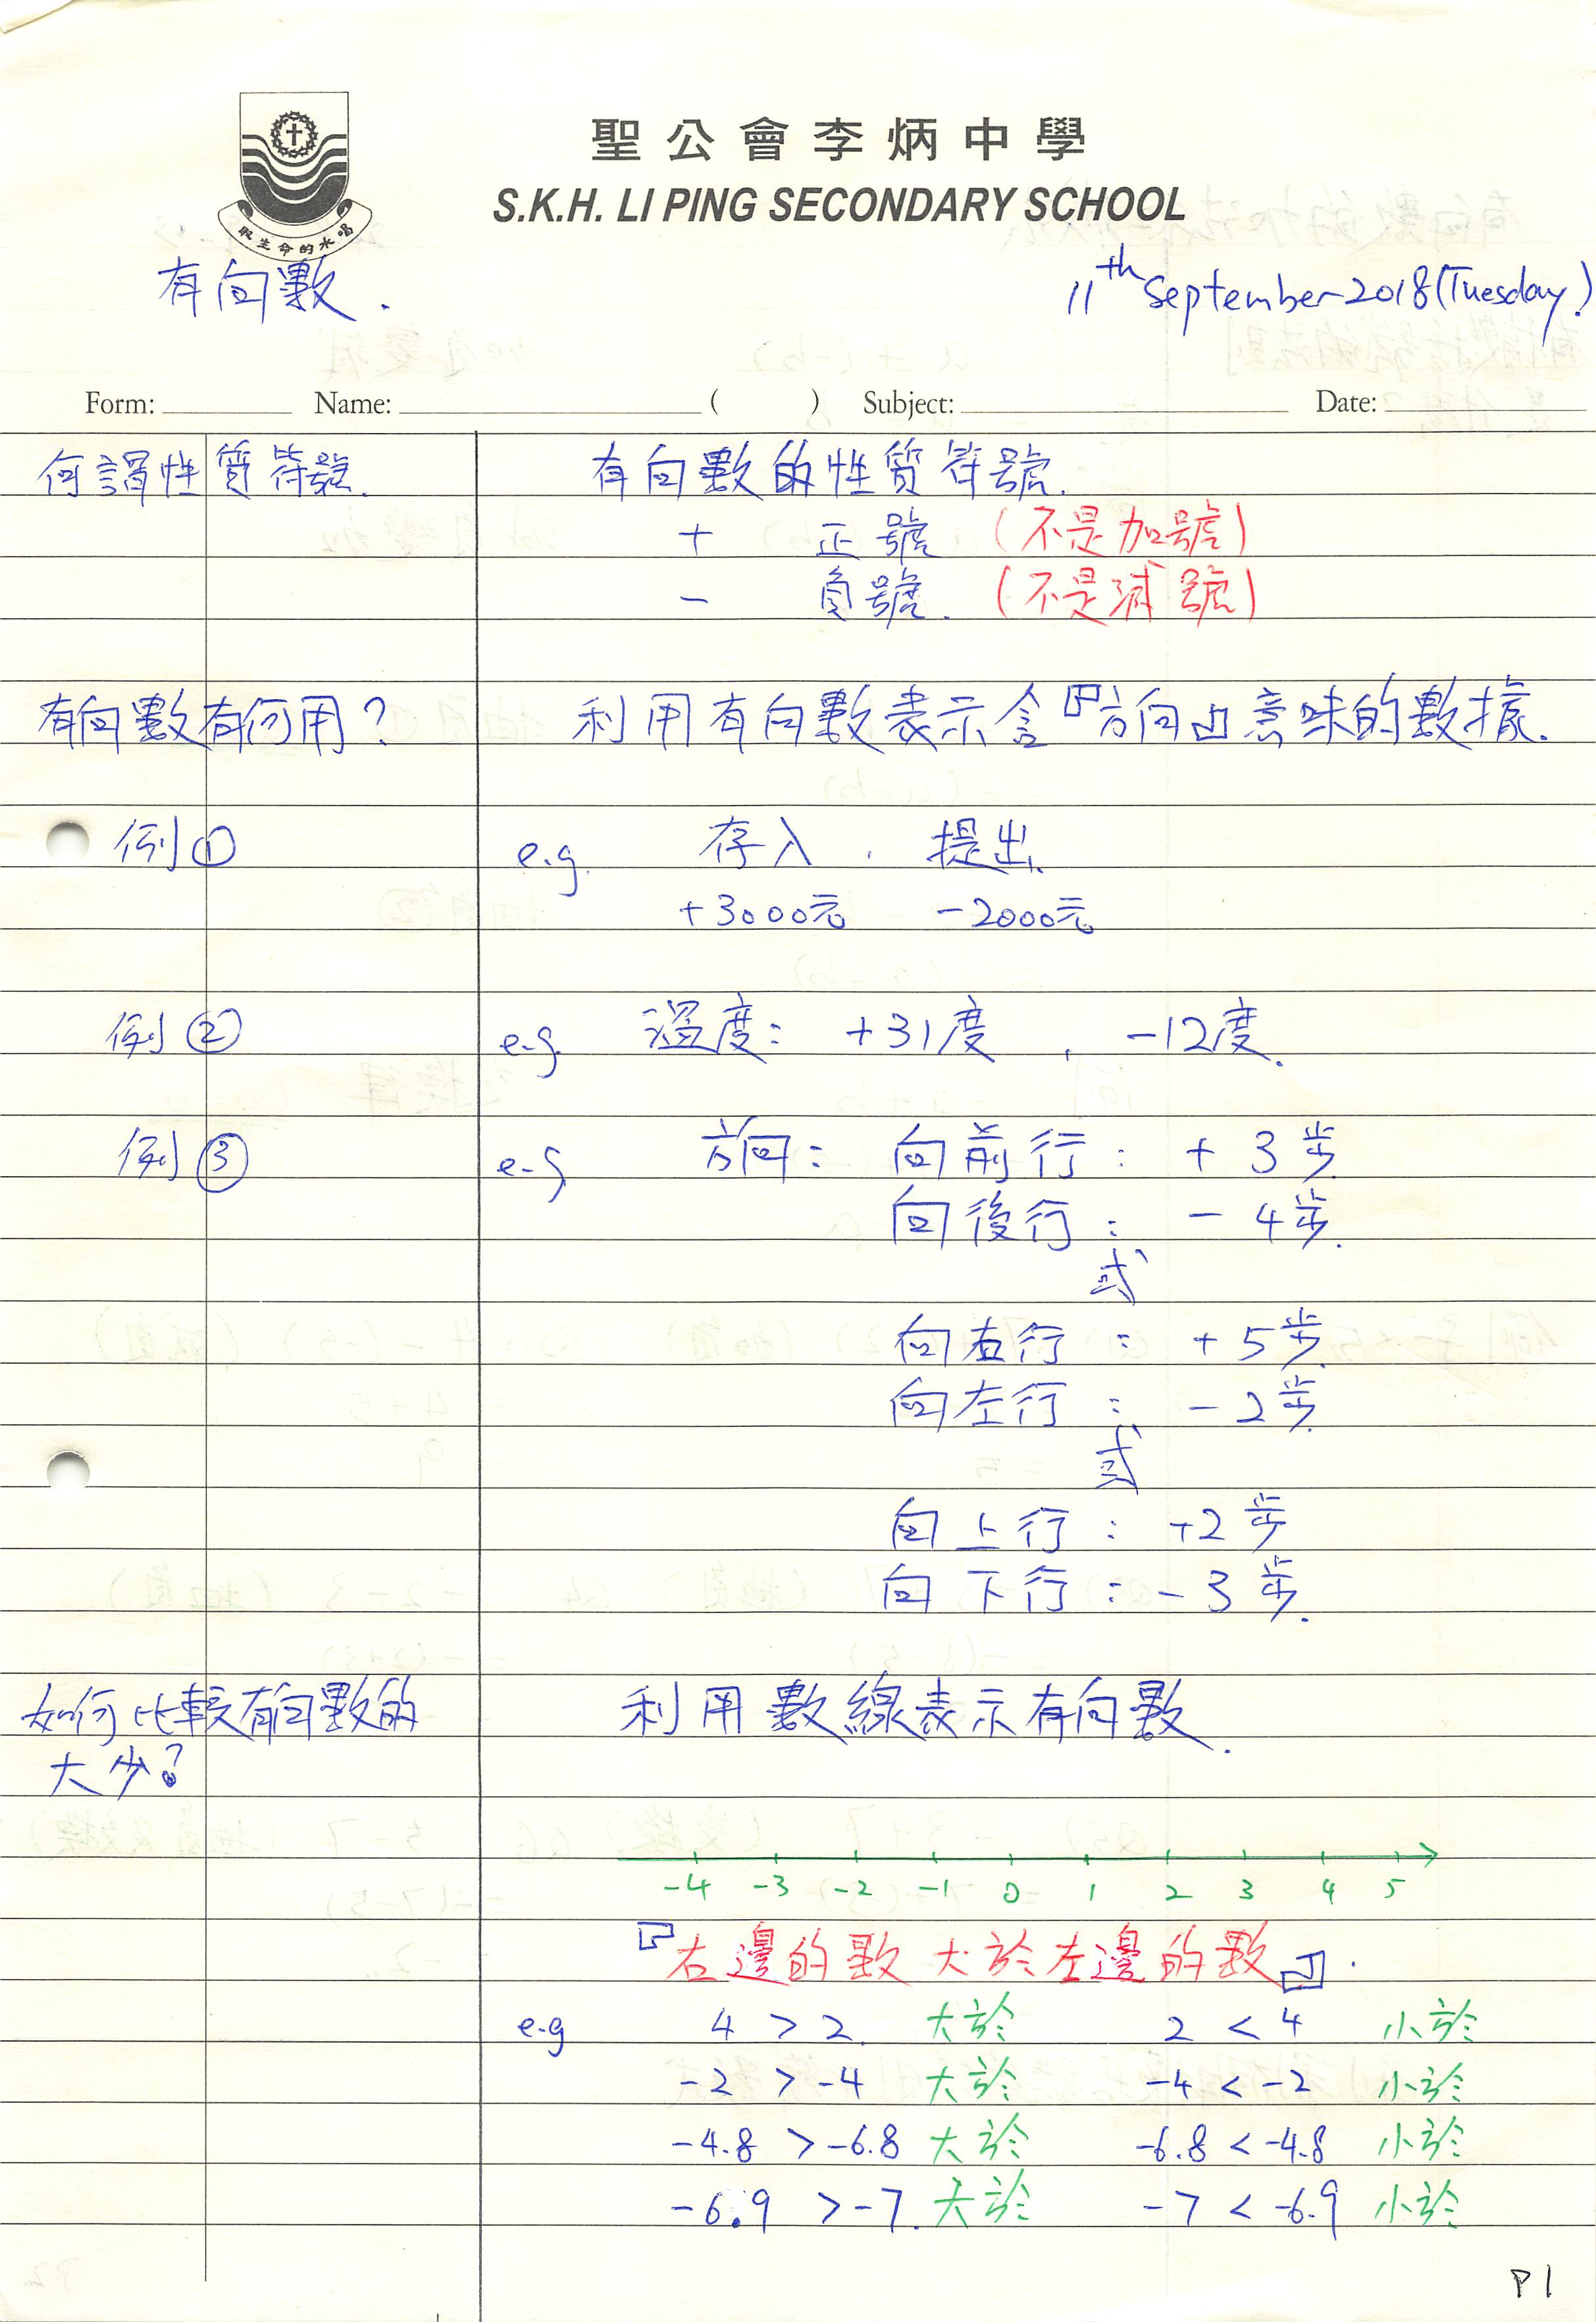 聖公會李炳中學
S.K.H. LI PING SECONDARY SCHOOL
有向數.
11th September 2018 (Tuesday)
Form: Name: ( ) Subject: Date:
何謂性質符號. 有向數的性質符號.
+ 正號 (不是加號)
- 負號. (不是減號)
有向數有何用? 利用有向數表示含『方向』意味的數據.
例① e.g 存入 , 提出.
+3000元 -2000元
例② e.g. 溫度: +31度 , -12度.
例③ e.g 方向: 向前行: +3步
向後行: -4步.
或
向右行: +5步.
向左行: -2步.
或
向上行: +2步
向下行: -3步.
如何比較有向數的 利用數線表示有向數.
大少?
-4 -3 -2 -1 0 1 2 3 4 5
『右邊的數大於左邊的數』.
e.g 4 > 2. 大於 2 < 4 小於
-2 > -4 大於 -4 < -2 小於
-4.8 > -6.8 大於 -6.8 < -4.8 小於
-6.9 > -7. 大於 -7 < -6.9 小於
P1